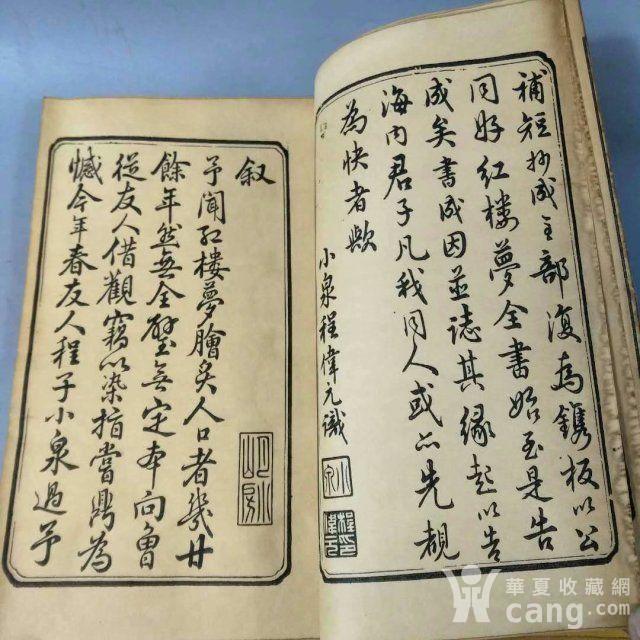 補短抄成全部復為鐫板以公
同好紅樓夢全書始至是告
成矣書成因並誌其緣起以告
海內君子凡我同人或亦先覩
為快者歟
小泉程偉元識
小泉
程偉元印
叙
予聞紅樓夢膾炙人口者幾廿
餘年然無全璧無定本向曾
從友人借觀竊以染指嘗鼎為
憾今年春友人程子小泉過予
華夏收藏網
cang.com